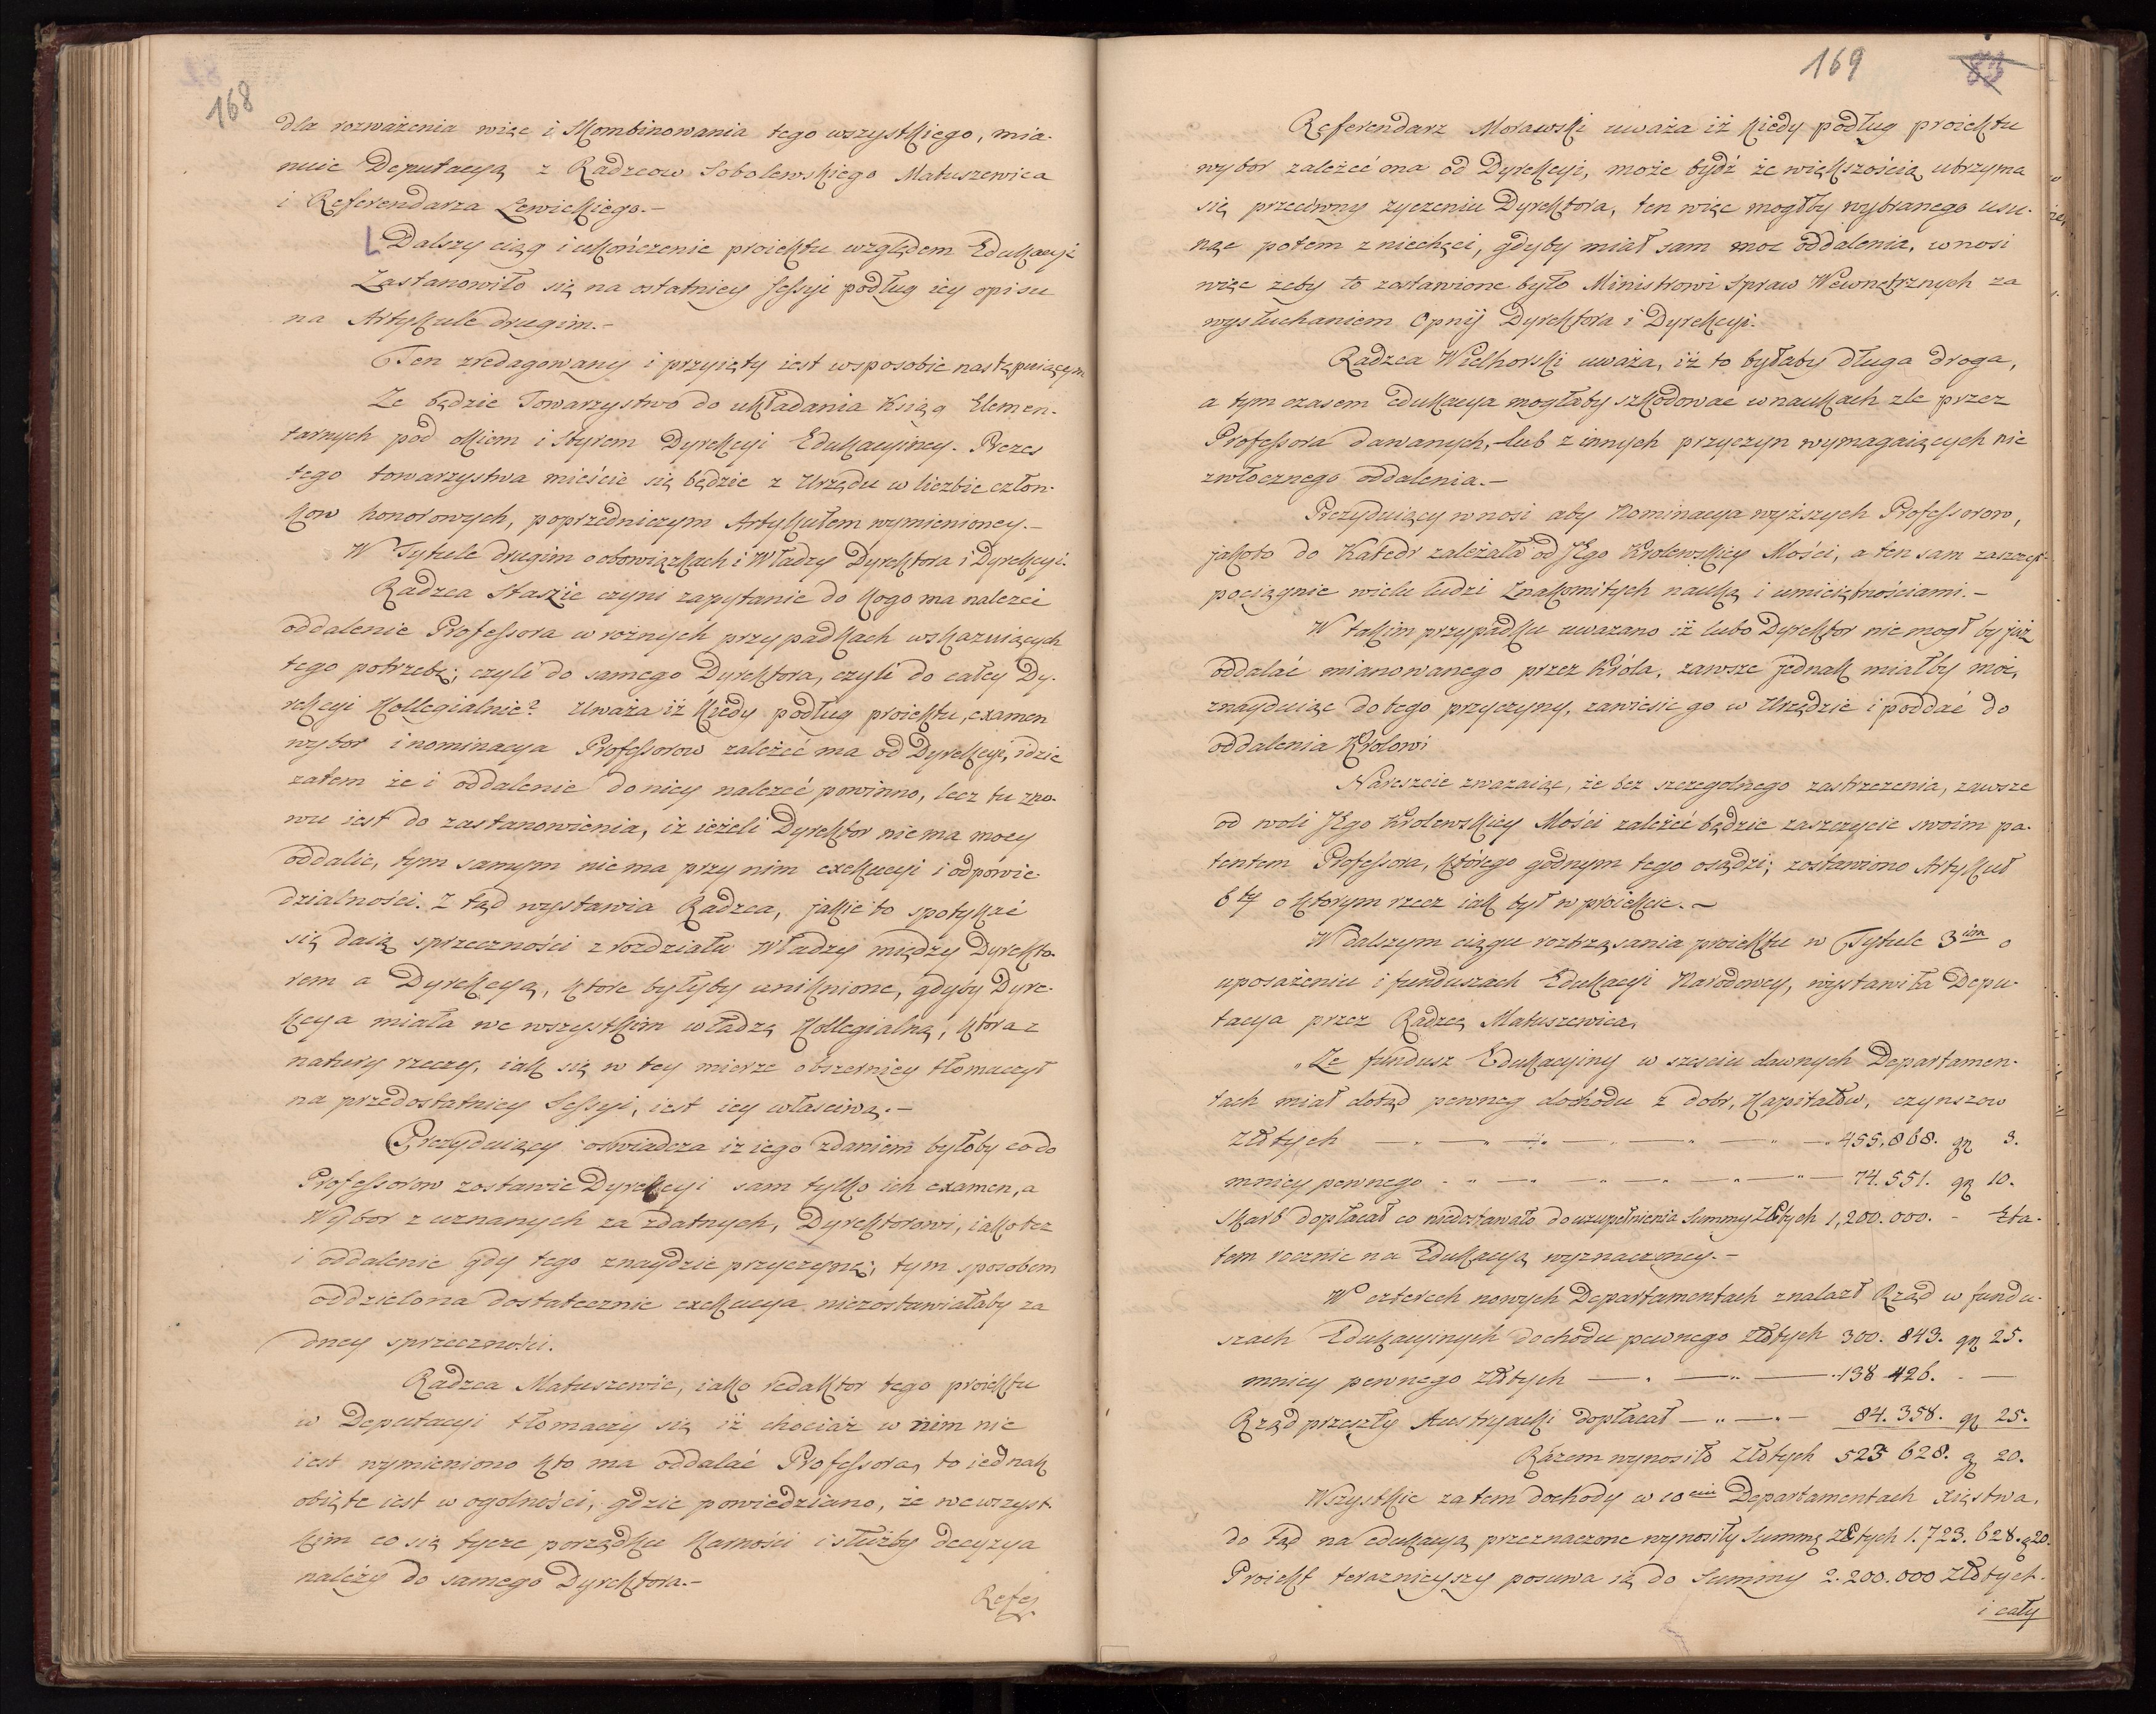 168
dla rozważenia więc i skombinowania tego wszystkiego, mia-
nuie Deputacyą z Radzcow Sobolewskiego Matuszewica
i Referendarza Lewickiego.-
Dalszy ciąg i ukończenie proiektu względem Edukacyi
Zastanowiło się na ostatniey Sessyi podług iey opisu
na Artykule drugim.-
Ten zredagowany i przyięty iest wsposobie następuiącym
Ze będzie Towarzystwo do układania Książ Elemen-
tarnych pod okiem i styrem Dyrekcyi Edukacyiney. Prezes
tego towarzystwa mieście się będzie z Urzędu w liczbie człon-
kow honorowych, poprzedniczym Artykułem wymienioney.-
W Tytule drugim o obowiązkach i Władzy Dyrektora i Dyrekcyi.
Radzca Staszic czyni zapytanie do kogo ma nalezeć
oddalenie Professora w rożnych przypadkach wskazuiących
tego potrzebę; czyli do samego Dyrektora, czyli do całey Dy-
rekcyi Kollegialnie? Uważa iż kiedy podług proiektu, examen
wybor i nominacya Professorow zależeć ma od Dyrekcyi, idzie
zatem że i oddalenie do niey nalezeć powinno, lecz tu zno-
wu iest do zastanowienia, iż ieżeli Dyrektor niema mocy
oddalić, tym samym niema przy nim exekucyi i odpowie-
dzialności. Z tąd wystawia Radzca, jakie to spotykać
się daią sprzeczności z rozdziału Władzy między Dyrekto-
rem a Dyrekcyą, ktore byłyby uniknione, gdyby Dyre-
kcya miała we wszystkim władzę Kollegialną, ktora z
natury rzeczy, iak się w tey mierze obszerniey tłomaczył
na przedostatniey Sessyi, iest iey właściwą.-
Prezyduiący oświadcza iż iego zdaniem byłoby co do
Professorow zostawić Dyrekcyi sam tylko ich examen, a
Wybor z uznanych za zdatnych, Dyrektorowi, iako też
i oddalenie gdy tego znaydzie przyczynę; tym sposobem
oddzielona dostatecznie exekucya niezostawiałaby ża
dney sprzeczności.
Radzca Matuszewic, iako redaktor tego proiektu
w Deputacyi tłomaczy się iż chociaż w nim nie
iest wymieniono kto ma oddalać Professora, to iednak
obięte iest w ogolności, gdzie powiedziano, że we wszyst-
kim co się tycze porządku karności i służby decyzya
należy do samego Dyrektora.-
Refe
169
83
Referendarz Morawski uważa iż kiedy podług proiektu
wybor zależeć ma od Dyrekcyi, może bydź że większością utrzyma
się przeciwny życzeniu Dyrektora, ten więc mogłby wybranego usu-
nąć potem z niechęci, gdyby miał sam moc oddalenia, wnosi
więc żeby to zostawione było Ministrowi Spraw Wewnętrznych za
wysłuchaniem Opnij Dyrektora i Dyrekcyi.
Radzca Wielhorski uważa, iż to byłaby długa droga,
a tym czasem edukacya mogłaby szkodować w naukach źle przez
Professora dawanych, lub z innych przyczyn wymagaiących nie
zwłocznego oddalenia.-
Prezyduiący wnosi aby Nominacya wyższych Professorow,
jakoto do Katedr zależała od JEgo Krolewskiey Mości, a ten sam zaszczyt
pociągnie wielu ludzi Znakomitych nauką i umieiętnościami.-
W takim przypadku uważano iż lubo Dyrektor nie mogł by już
oddalać mianowanego przez Króla, zawsze jednak miałby moc,
znayduiąc do tego przyczyny, zawiesić go w Urzędzie i poddać do
oddalenia Krolowi
Nareszcie zważaiąc, że bez szczegolnego zastrzeżenia, zawsze
od woli JEgo Krolewskiey Mości zależeć będzie zaszczycić swoim pa-
tentem Professora, którego godnym tego osądzi; zostawiono Artykuł
6ty o ktorym rzecz iak był w proiekcie.-
W dalszym ciągu roztrząsania proiektu w Tytule 3cim o
uposażeniu i funduszach Edukacyi Narodowey, wystawiła Depu-
tacya przez Radzcę Matuszewica,
„Ze fundusz Edukacyiny w sześciu dawnych Departamen-
tach miał dotąd pewneg dochodu z dobr, Kapitałów, czynszow
Złłtych — „ — „ — „ — „ — 455,868. gr 3.
mniey pewnego - „ — „ — „ — „ — 74.551. gr 10.
Skarb dopłacał co niedostawało do uzupełnienia Summy Złłtych 1,200.000. - Eta-
tem rocznie na Edukacyą wyznaczoney.-
W czterech nowych Departamentach znalazł Rząd w fundu-
szach Edukacyinych dochodu pewnego złłtych 300. 843. gr 25.
mniey pewnego Złłtych — „ — „ — 138 426. - —
Rząd przeszły Austryacki dopłacał — „ — „ — 84. 358. gr 25.
Razem wynosiło Złłtych 523 628. gr 20.
Wszystkie zatem dochody w 10ciu Departamentach Xięstwa,
do tąd na edukacyą przeznaczone wynosiły Summę Złłtych 1.723. 628. g 20.
Proiekt teraznieyszy posuwa ią do Summy 2.200.000 Złłtych.
i cały